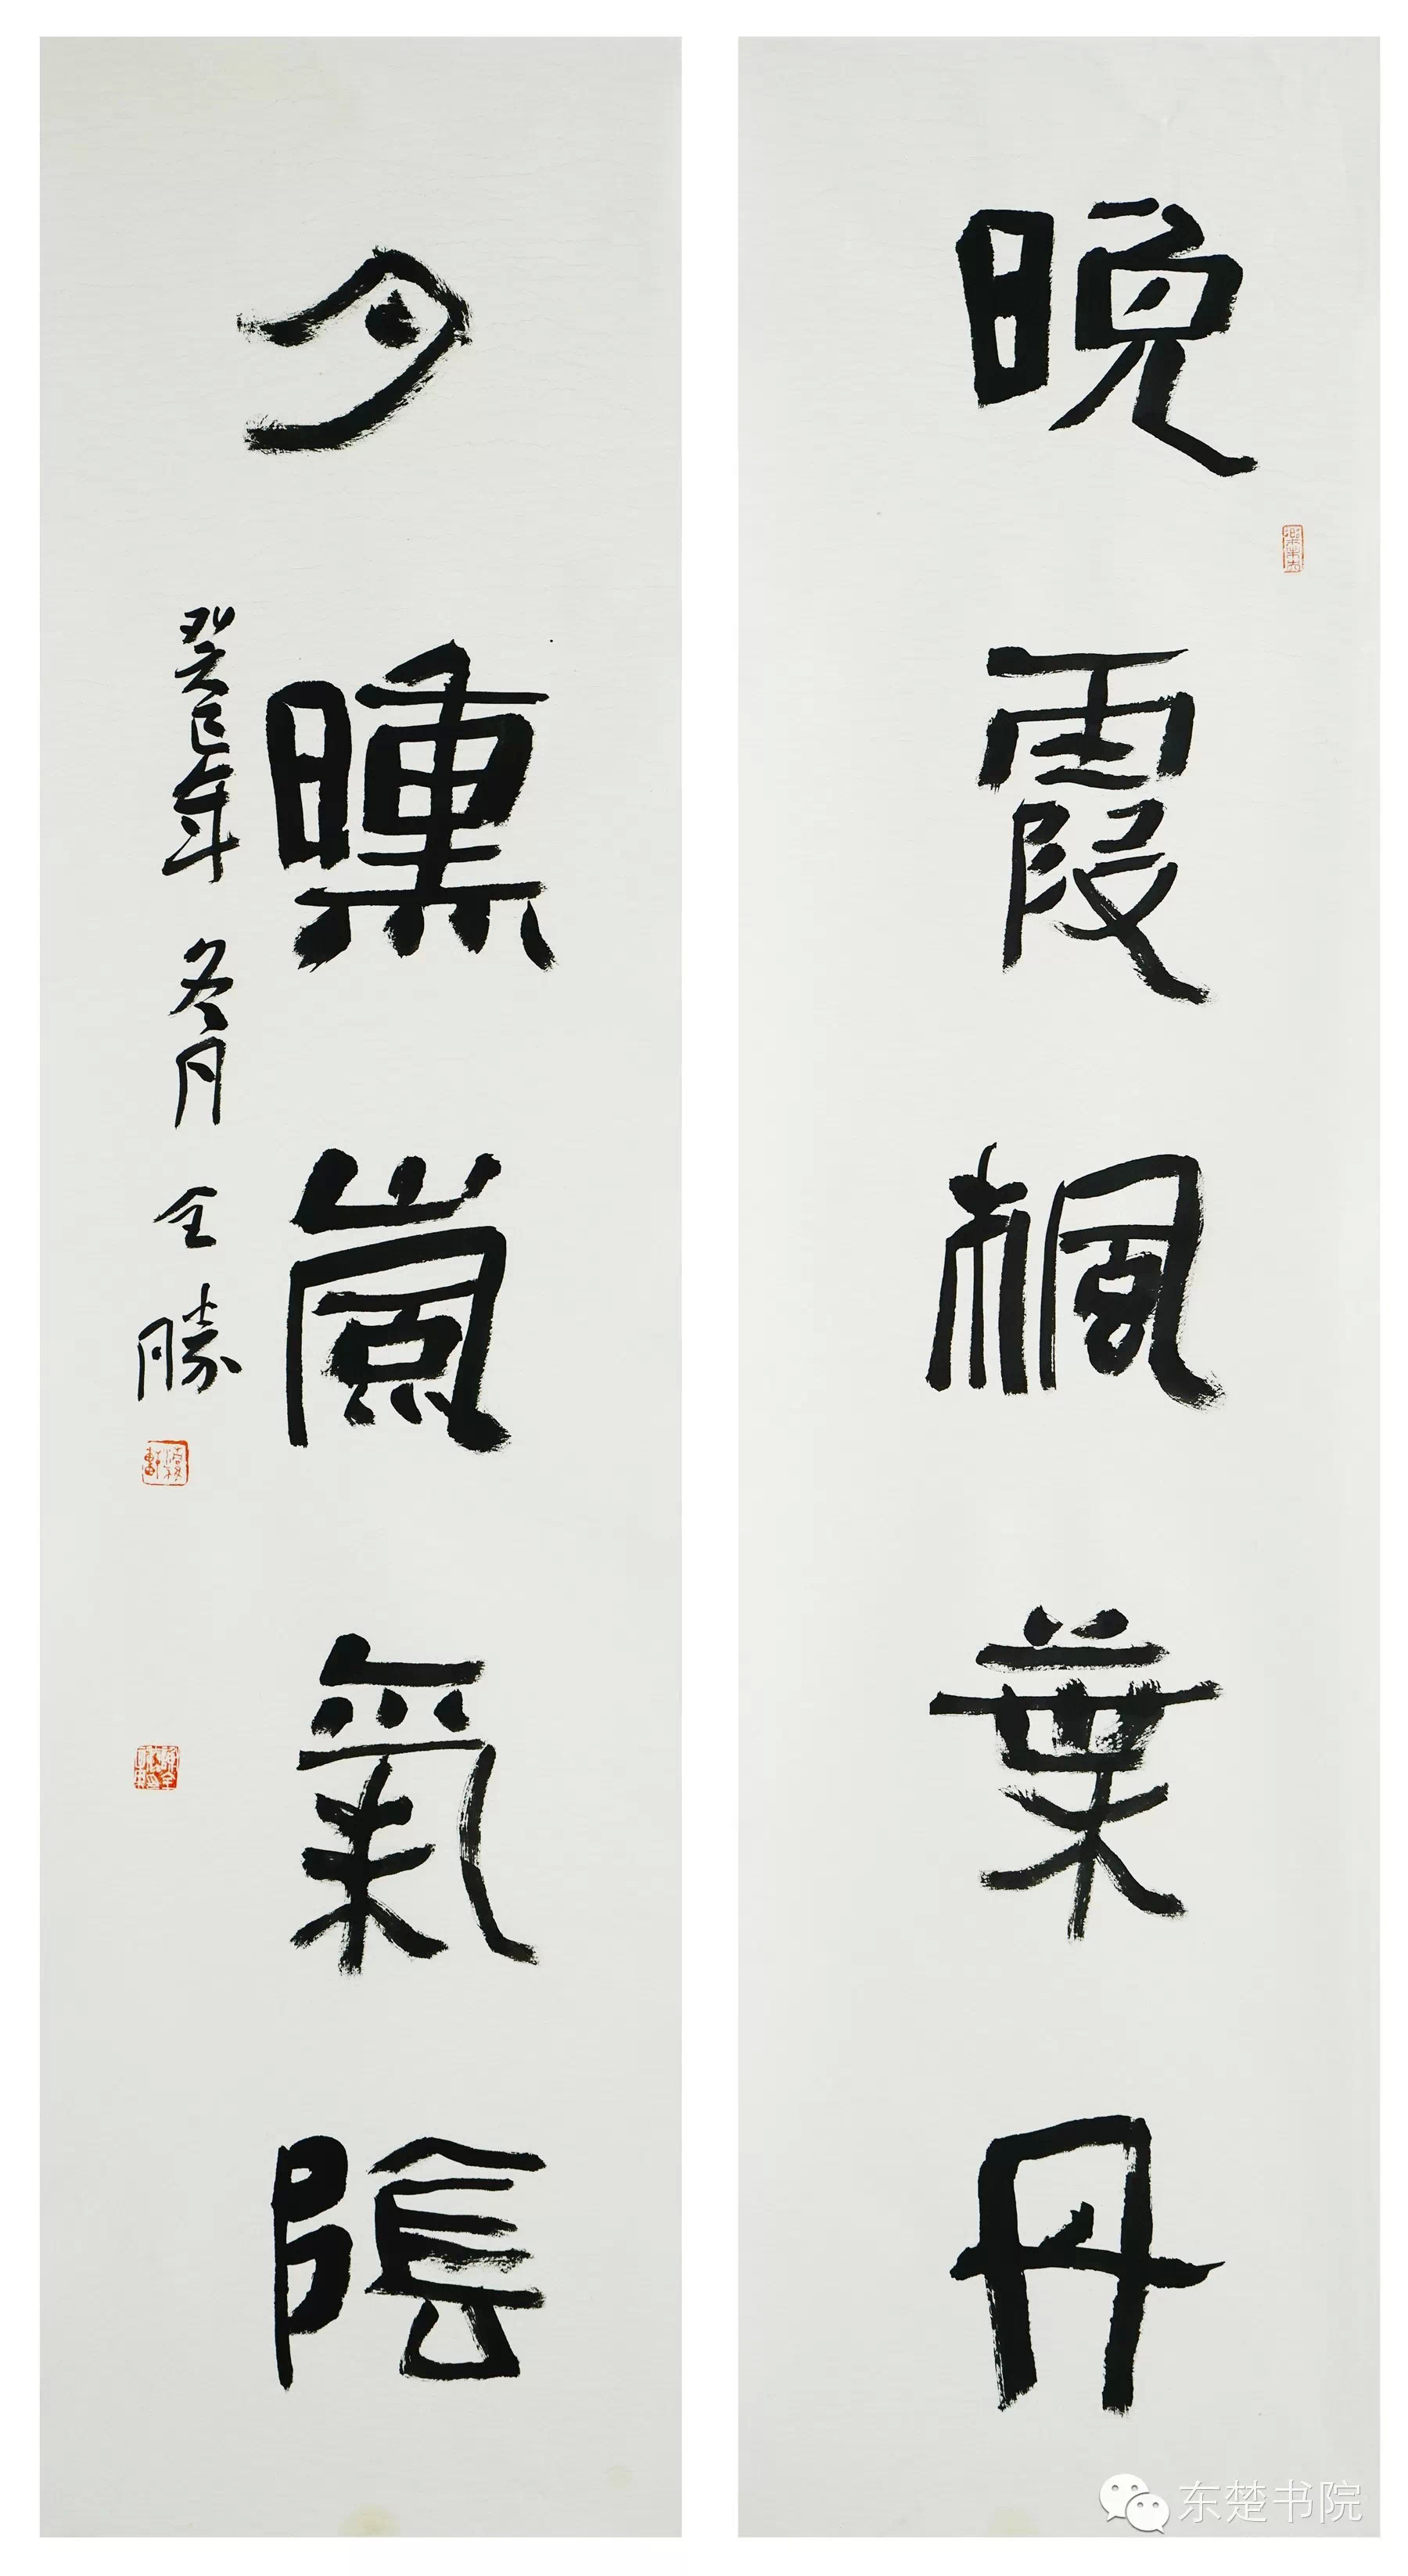 晚霞楓葉丹
夕曛嵐氣陰
癸巳年冬月全勝
东楚书院